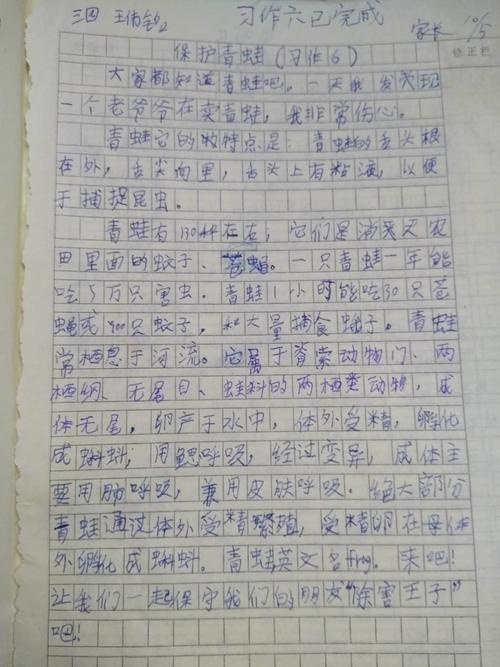 三四 王 习作六已完成 家长 10/5
修正栏
保护青蛙(习作6)
大家都知道青蛙吧。一天我发现
一个老爷爷在卖青蛙,我非常伤心。
青蛙它的特点是:青蛙的舌头根
在外,舌尖向里,舌头上有粘液,以便
于捕捉昆虫。
青蛙有130种左右,它们是消灭农
田里面的蚊子、苍蝇。一只青蛙一年能
吃5万只害虫。青蛙1小时能吃30只苍
蝇或100只蚊子,和大量捕食蛾子。青蛙
常栖息于河流。它属于脊索动物门、两
栖纲、无尾目、蛙科的两栖类动物,成
体无尾,卵产于水中,体外受精,孵化
成蝌蚪,用鳃呼吸,经过变异,成体主
要用肺呼吸,兼用皮肤呼吸。绝大部分
青蛙通过体外受精繁殖,受精卵在母体
外孵化成蝌蚪。青蛙英文名frog。来吧!
让我们一起保守我们的朋友“除害王子”
吧!